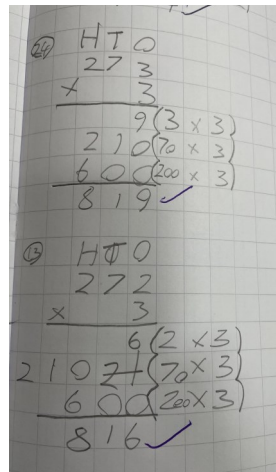 24 H T O
2 7 3
× 3
9 (3 × 3)
2 1 0 (70 × 3)
6 0 0 (200 × 3)
8 1 9 ✓
13 H T O
2 7 2
× 3
6 (2 × 3)
2 1 0 (70 × 3)
6 0 0 (200 × 3)
8 1 6 ✓